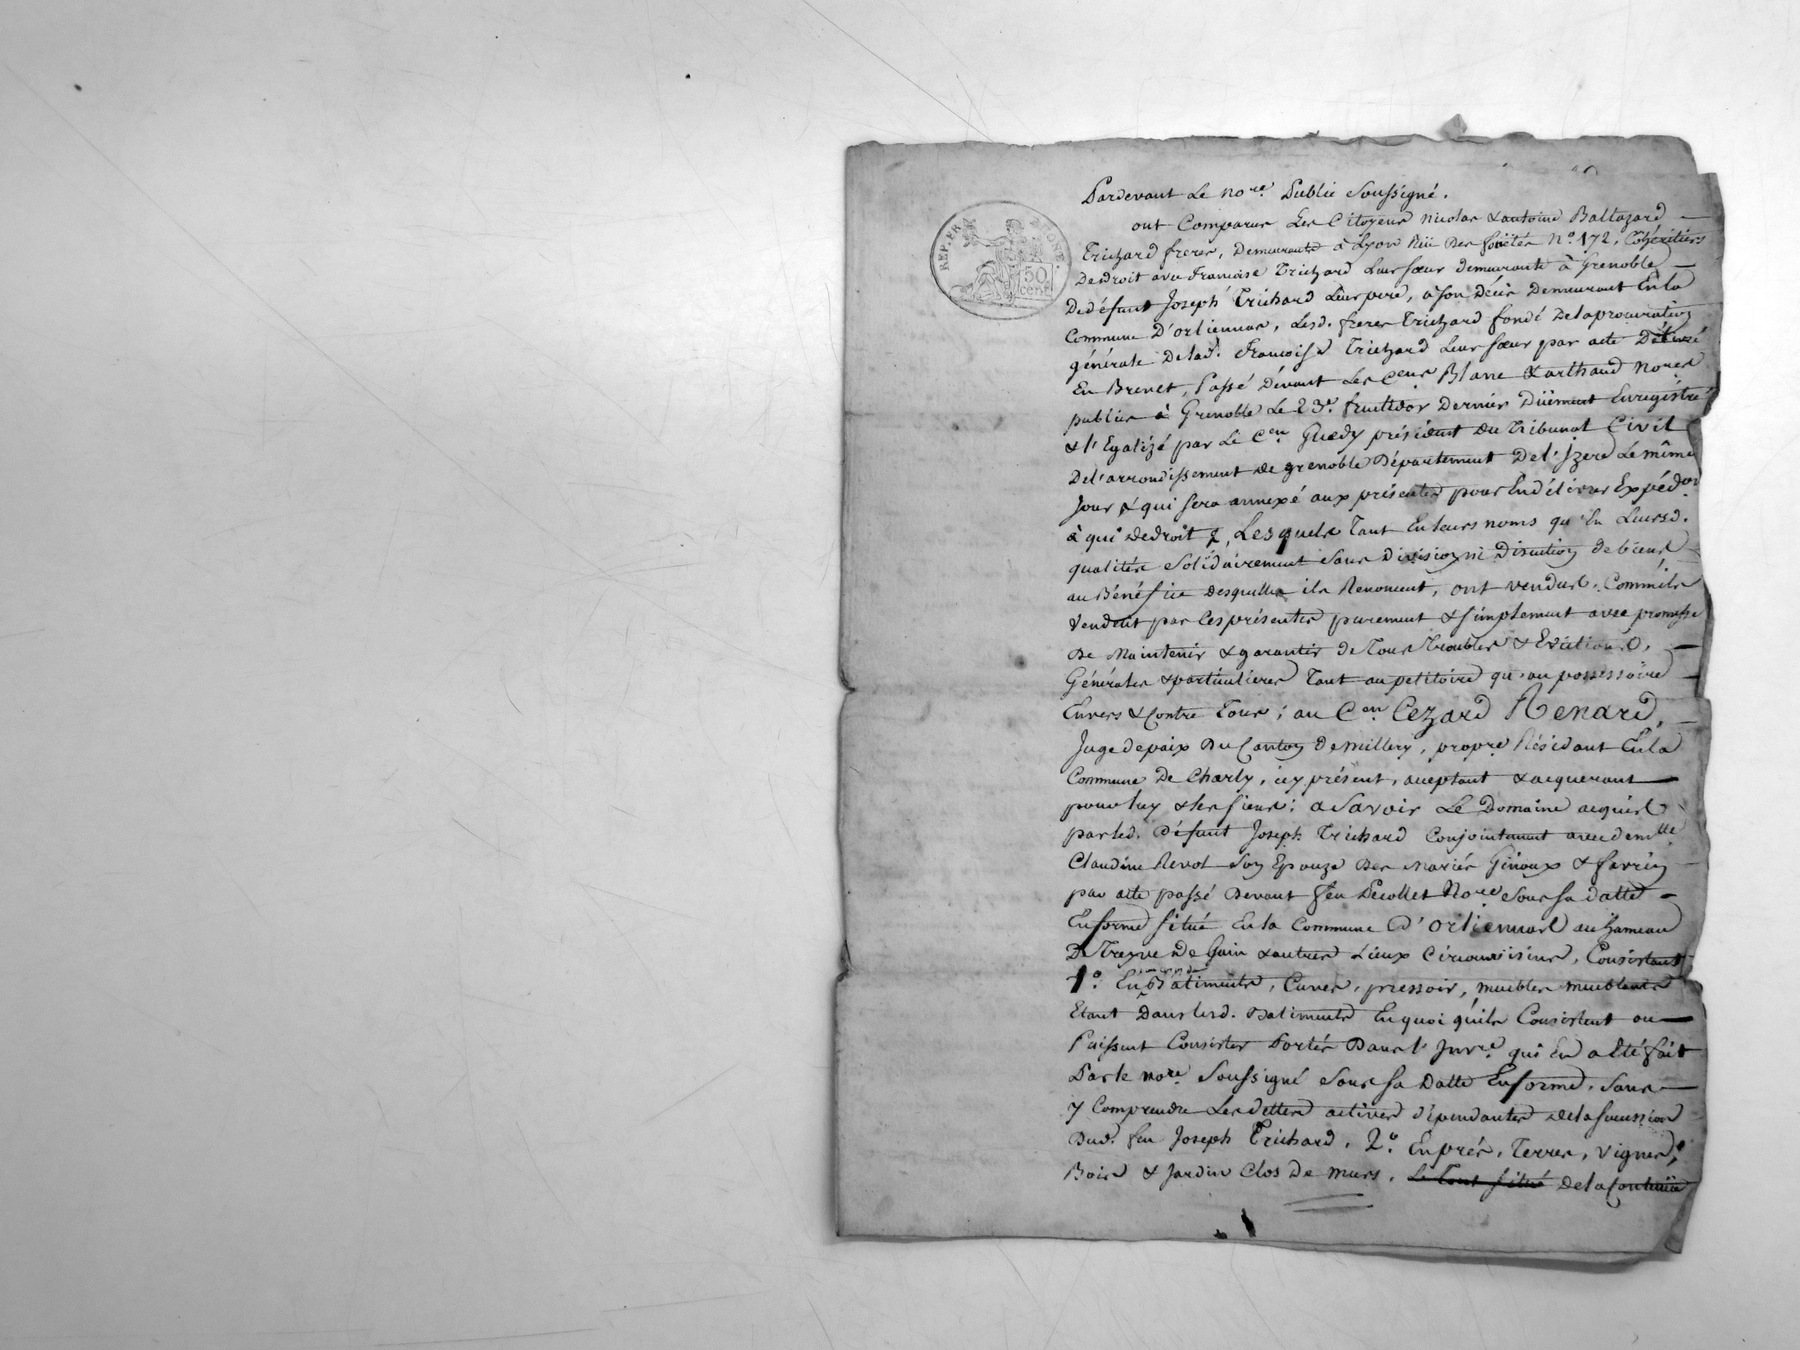 REP. FRA RHONE
50
cent.
Pardevant Le no.re Public Soussigné.
ont Comparus Les Citoyens Nicolas & antoine Baltazard
Trichard freres, Demeurants à Lyon Rüe Des N.o 172, Cohéritiers
De droit avec Francoise Trichard Leur sœur demeurante à Grenoble
De défunt Joseph Trichard Leur pere, à son Décès Demeurant En la
Commune D'orlienas, Lesd. freres Trichard fondé De la procuration
générale De lad. Francoise Trichard Leur sœur par acte Délivré
En Brevet, Passé Dévant Les C.ens Blanc & arthaud No.res
publics à Grenoble Le 23.e fructidor Dernier Düement Enregistré
& l'Egalizé par Le C.en président Du Tribunal Civil
De l'arrondissement de grenoble Département De l'Izere Le même
Jour & qui sera annexé aux présentes pour En délivrer Expéd.on
à qui de droit, Lesquels Tant En leurs noms qu'En Leursd.
qualités Solidairement Sans Division ni Discution de biens
au Bénéfice desquelles ils Renoncent, ont vendus, Comm'ils
Vendent par les présentes purement & simplement avec promesse
De Maintenir & garantir de Tous Troubles & Evictions,
Générales & particulieres Tant au petitoire qu'au possessoire
Envers & Contre Tous; au C.en Cezard Renard,
Juge de paix Du Canton de Millery, propr.e Résidant En la
Commune De Charly, icy présent, acceptant & acquerant
pour luy & les siens; a Savoir Le Domaine acquis
par led. Défunt Joseph Trichard Conjointement avec dem.lle
Claudine Revol Son Epouze Des Mariés Ginoux & favrin
par acte passé Devant feu Decollet No.re Sous sa datte
En forme situé En la Commune D'orlienas au hameau
De Treyve De Gain & autres Lieux Circonvoisins, Consistant
1.o En Bâtiments, Cuves, pressoir, meubles meublants
Etant Dans lesd. Batiments En quoi qu'ils Consistent ou
Puissent Consister Portés Dans l'Inv.re qui En a Eté fait
Par le no.re Soussigné Sous sa Datte En forme, Sans
y Comprendre Les dettes actives dépendantes de la succession
Dud. feu Joseph Trichard, 2.o En prés, Terres, vignes,
Bois & Jardin Clos De murs, Le Tout situé De la Contenüe